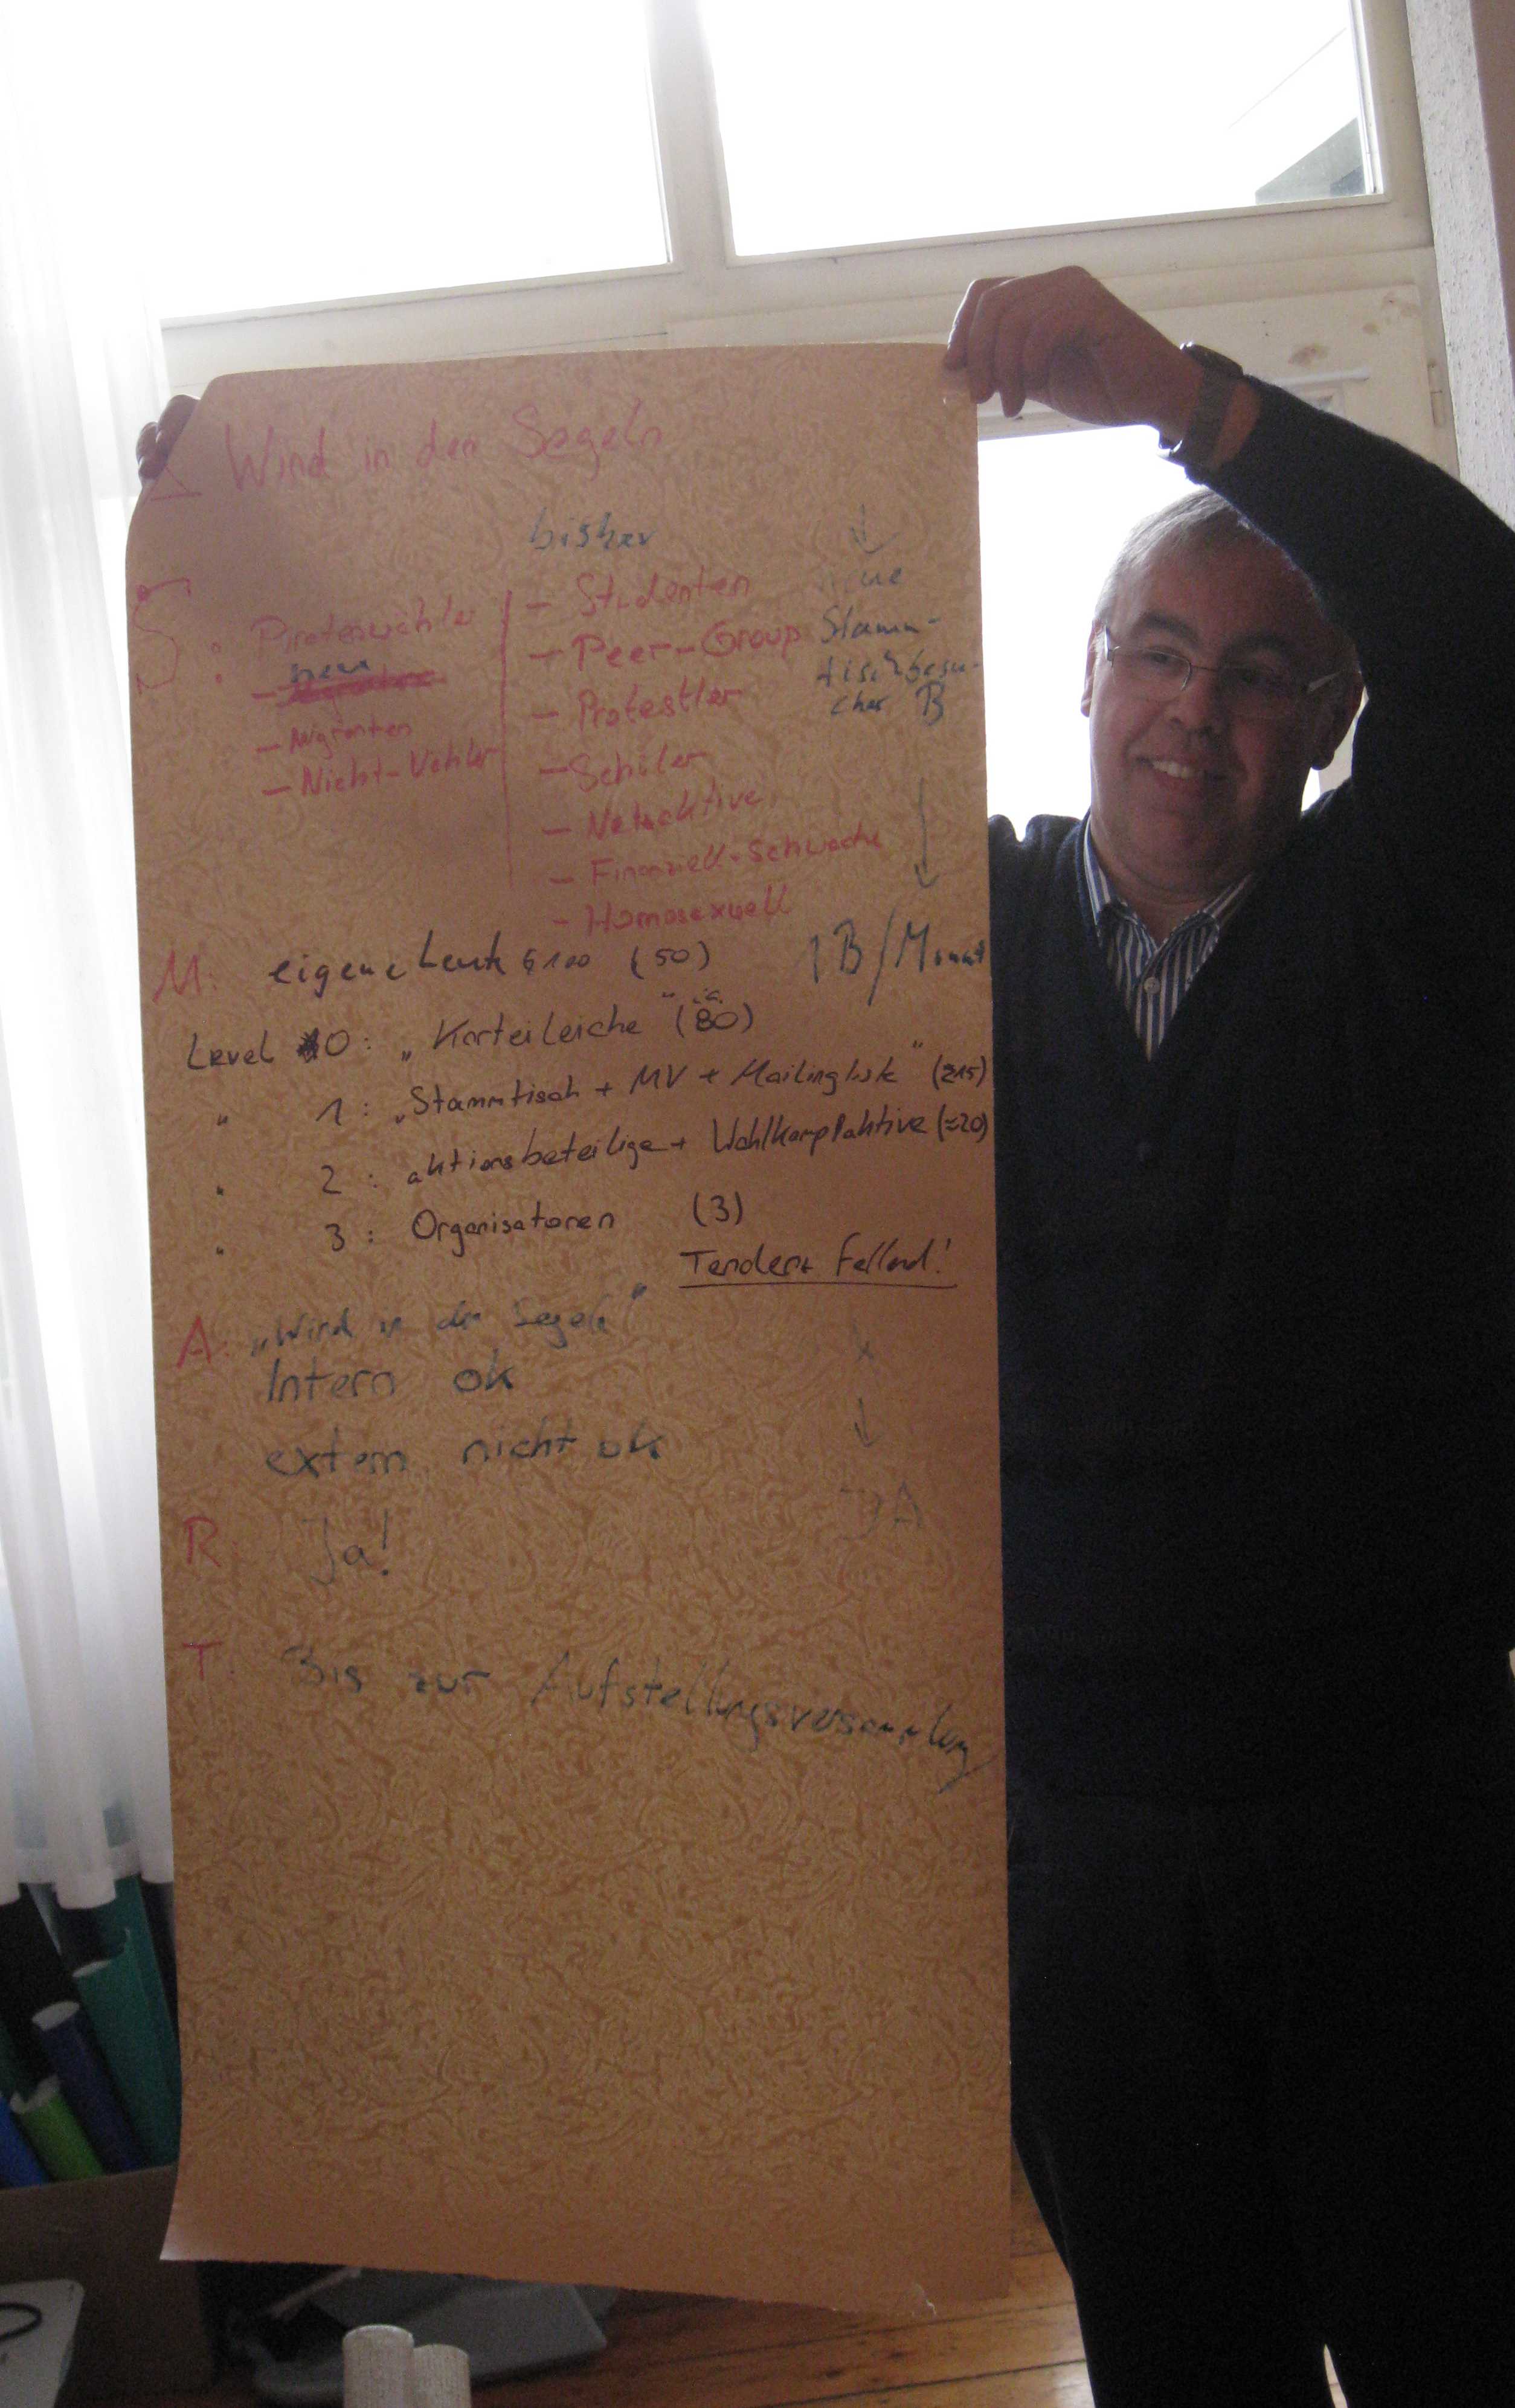 Wind in den Segeln
bisher
S: Piratenwähler
neu
- Migranten
- Nicht-Wähler
- Studenten
- Peer-Group
- Protestler
- Schüler
- Netzaktive
- Finanziell-Schwache
- Homosexuell
↓
neue
Stamm-
tischbesu-
cher B
↓
1B/Monat
M: eigene Leute (50)
Level 0: „Karteileiche" (80)
" 1: „Stammtisch + MV + Mailingliste"
" 2: aktionsbeteilige + Wahlkampfaktive (≈20)
" 3: Organisatoren (3)
Tendenz fallend!
A: „Wind in den Segeln"
Intern ok
extern nicht ok
↓
JA
R: Ja!
T: Bis zur Aufstellungsversammlung